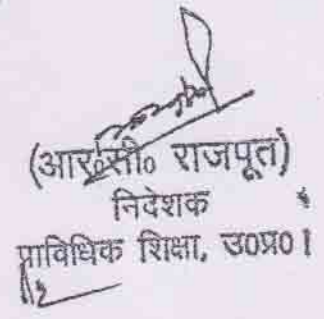 (आर०सी० राजपूत)
निदेशक
प्राविधिक शिक्षा, उ०प्र०।